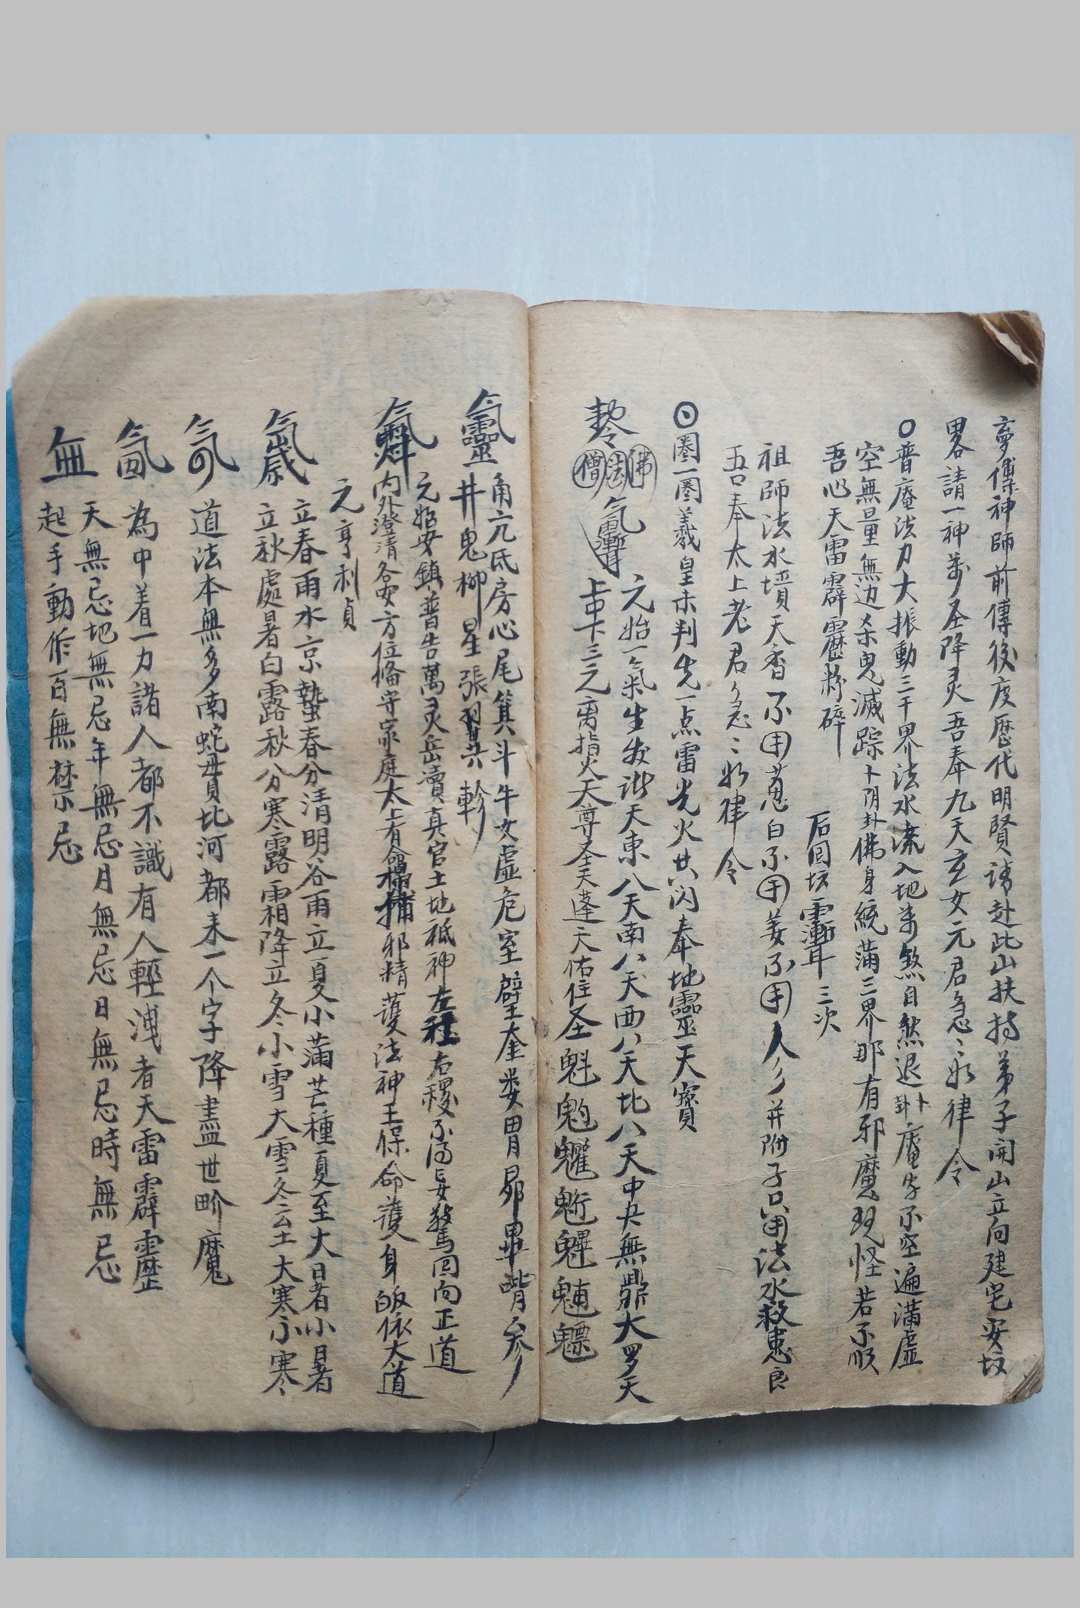 夢傳神師前傳後度歷代明賢請赴此山扶持弟子開山立向建宅安坟
畧請一神萬圣降灵吾奉九天玄女元君急〻如律令
普庵法力大振動三千界法水流入地萬煞自煞退卜卦庵字不空遍滿虛
空無量無边杀鬼滅踪卜阴卦佛身統滿三界那有邪魔現怪若不順
吾心天雷霹靂粉碎
三次
祖師法水墳天香不用葱白不用姜不用人参并附子只用法水救患良
吾奉太上老君急〻如律令
圈一圈羲皇未判先一点雷光火共閃奉地靈天寶
佛法僧
元始一氣生發諸天東八天南八天西八天北八天中央無鼎大罗天
三元离指火天尊圣天蓬天佑住圣魁魀魓
靈 角亢氐房心尾箕斗牛女虛危室壁奎婁胃昴畢觜参
井鬼柳星張翌共軫
元始安鎮普告萬灵岳瀆真官土地祇神左社右稷不得妄驚回向正道
內外澄清各安方位俻守家庭太上有命搜捕邪精護法神王保命護身皈依大道
元亨利貞
立春雨水京蟄春分清明谷雨立夏小滿芒種夏至大暑小暑
立秋處暑白露秋分寒露霜降立冬小雪大雪冬至大寒小寒
道法本無多南蛇貫北河都来一个字降盡世畍魔
為中着一力諸人都不識有人輕洩者天雷霹靂
無 天無忌地無忌年無忌月無忌日無忌時無忌
起手動作百無禁忌